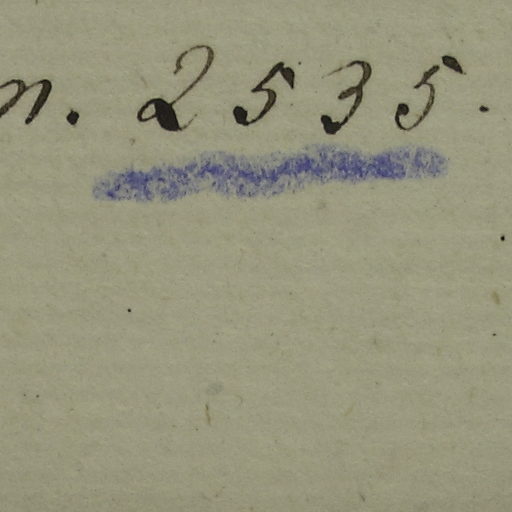 n. 2535.